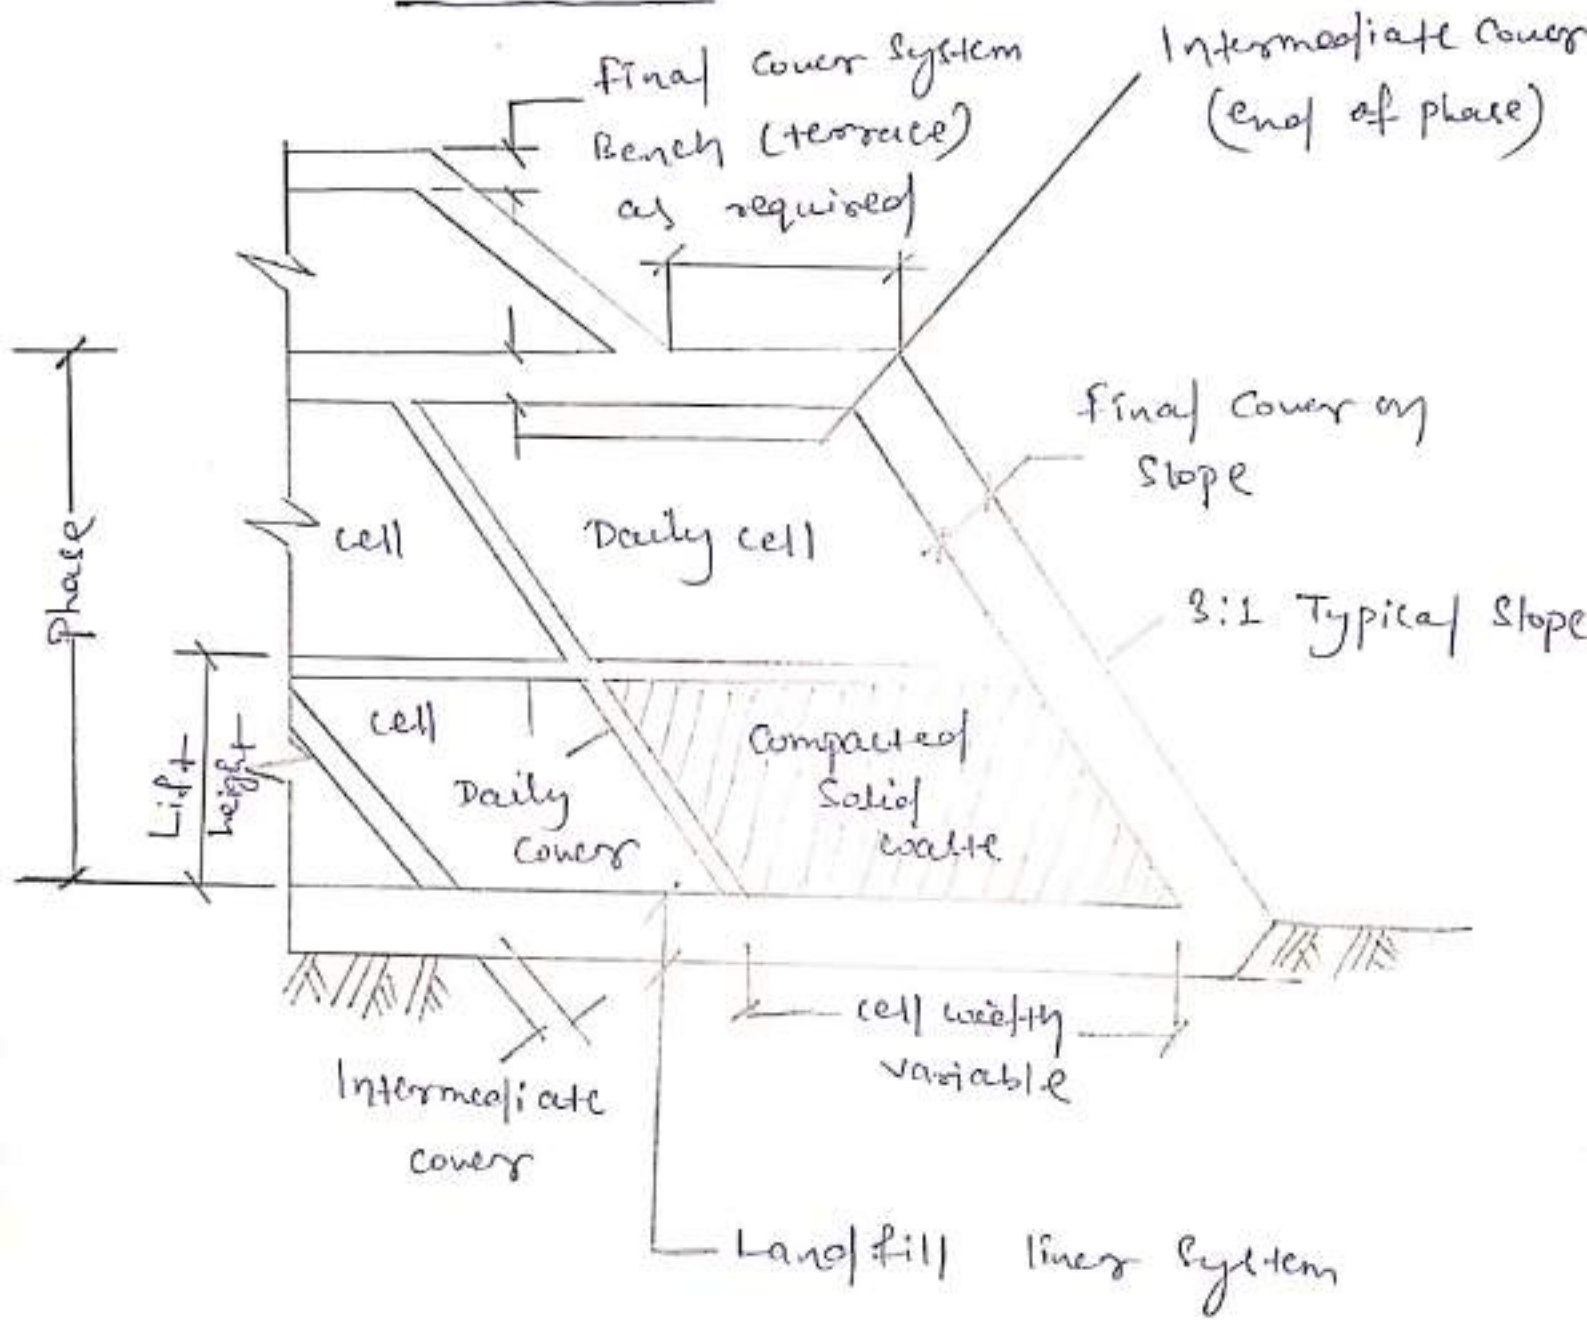 Final Cover System
Bench (terrace)
as required
Intermediate Cover
(end of phase)
Final Cover on
Slope
3:1 Typical Slope
Phase
cell
Daily cell
Lift
height
cell
Daily
cover
Compacted
Solid
waste
cell width
variable
Intermediate
cover
Landfill liner System